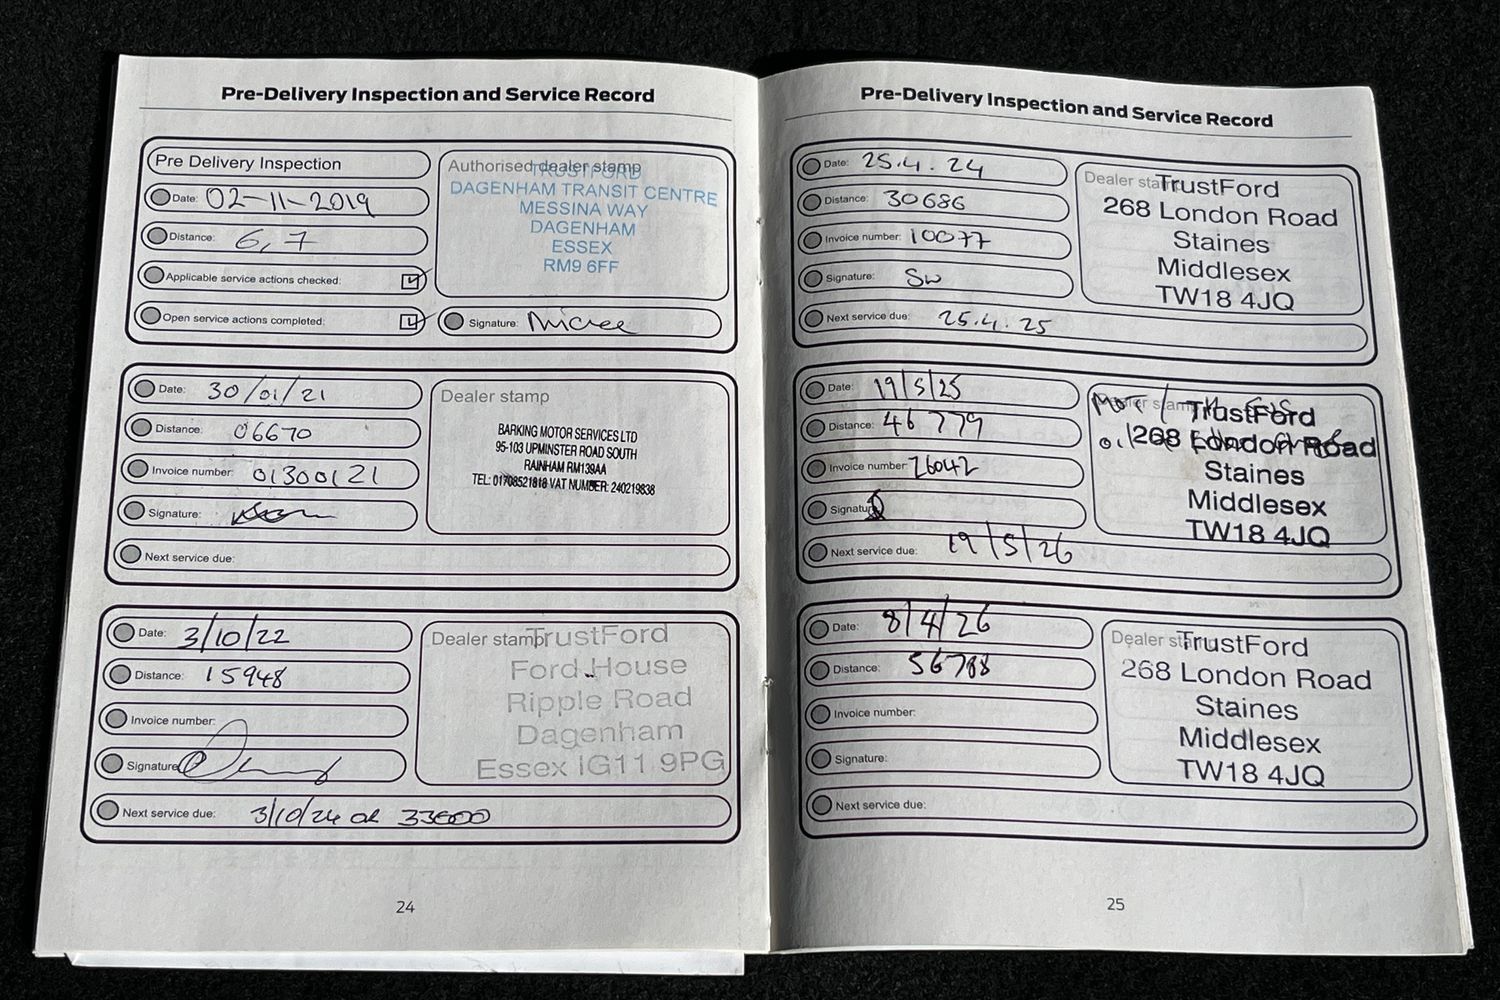 Pre-Delivery Inspection and Service Record
Pre Delivery Inspection
Date: 02-11-2019
Distance: 6,7
Applicable service actions checked:
Open service actions completed:
Authorised dealer stamp
TRUSTFORD
DAGENHAM TRANSIT CENTRE
MESSINA WAY
DAGENHAM
ESSEX
RM9 6FF
Signature:
Date: 30/01/21
Distance: 06670
Invoice number: 01300121
Signature:
Next service due:
Dealer stamp
BARKING MOTOR SERVICES LTD
95-103 UPMINSTER ROAD SOUTH
RAINHAM RM139AA
TEL: 01708521818 VAT NUMBER: 240219838
Date: 3/10/22
Distance: 15948
Invoice number:
Signature:
Next service due: 3/10/24 OR 33000
Dealer stamp
TrustFord
Ford House
Ripple Road
Dagenham
Essex IG11 9PG
24
Pre-Delivery Inspection and Service Record
Date: 25.4.24
Distance: 30686
Invoice number: 10077
Signature: SW
Next service due: 25.4.25
Dealer stamp
TrustFord
268 London Road
Staines
Middlesex
TW18 4JQ
Date: 19/5/25
Distance: 46779
Invoice number: 26042
Signature:
Next service due: 19/5/26
Dealer stamp
MOT/
TrustFord
268 London Road
Staines
Middlesex
TW18 4JQ
Date: 8/4/26
Distance: 56788
Invoice number:
Signature:
Next service due:
Dealer stamp
TrustFord
268 London Road
Staines
Middlesex
TW18 4JQ
25